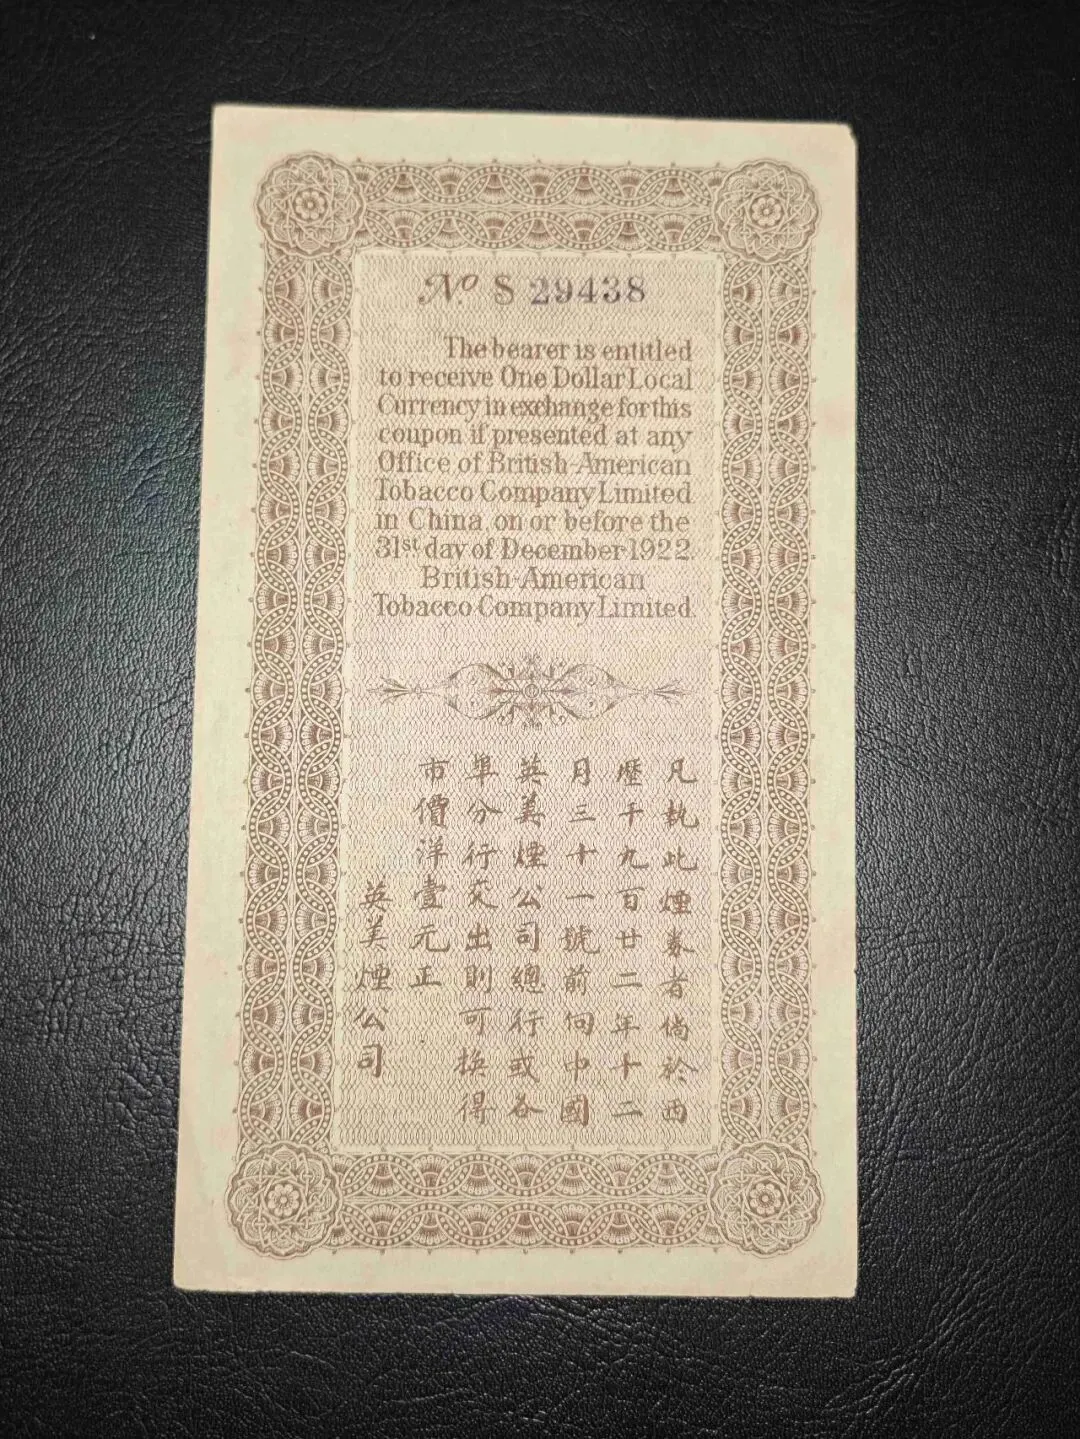 No. S 29438
The bearer is entitled
to receive One Dollar Local
Currency in exchange for this
coupon if presented at any
Office of British-American
Tobacco Company Limited
in China on or before the
31st day of December 1922.
British-American
Tobacco Company Limited.
凡執此煙券者倘於西
歷千九百廿二年十二
月三十一號前向中國
英美煙公司總行或各
埠分行交出則可換得
市價洋壹元正
英美煙公司